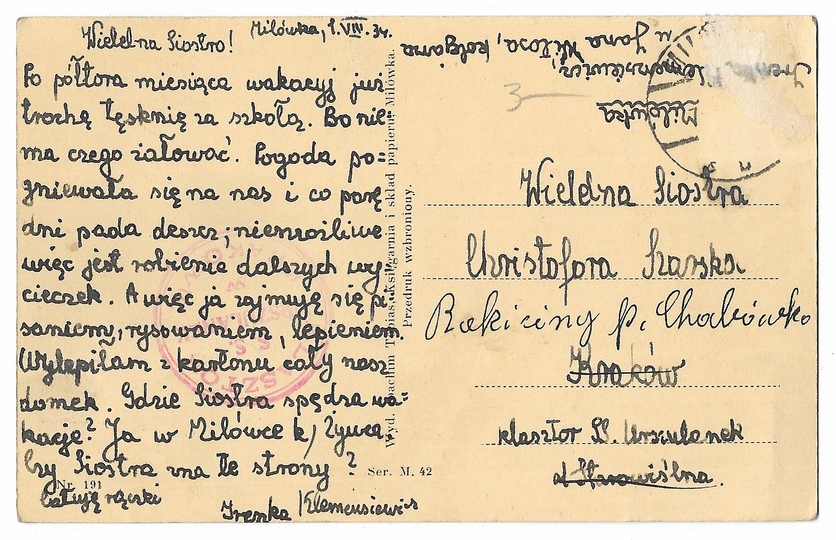 Wielebna Siostro! Milówka, 1.VIII.34.
Po półtora miesiąca wakacyj już
trochę tęsknię za szkołą. Bo nie
ma czego żałować. Pogoda po=
gniewała się na nas i co parę
dni pada deszcz; niemożliwe
więc jest robienie dalszych wy
cieczek. A więc ja zajmuję się pi
saniem, rysowaniem, lepieniem.
Wylepiłam z kartonu cały nasz
domek. Gdzie Siostra spędza wa=
kacje? Ja w Milówce k/Żywca.
Czy Siostra zna te strony?
Całuję rączki
Irenka Klemensiewicz
Nr. 191
Ser. M. 42
Wyd. Joachim Tobias, Księgarnia i skład papieru, Milówka.
Przedruk wzbroniony.
Irenka Klemensiewicz,
u Jana Witosa, kolejarza
Milówka
3
Wielebna Siostra
Christofora Szarska
Rokiciny p. Chabówko
Kraków
klasztor SS. Urszulanek
ul Starowiślna.